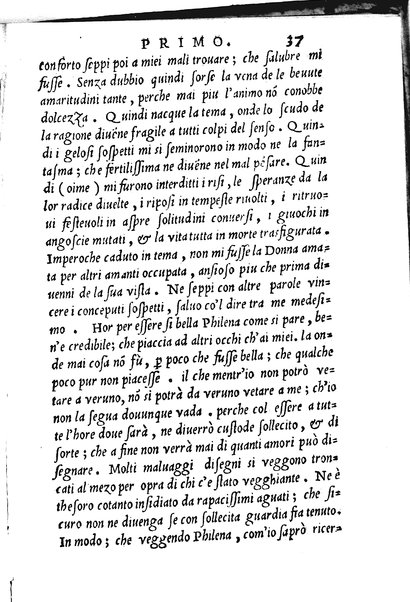 PRIMO. 37
conforto seppi poi a miei mali trouare; che salubre mi
fusse. Senza dubbio quindi sorse la vena de le beuute
amaritudini tante, perche mai piu l'animo nó conobbe
dolcezza. Quindi nacque la tema, onde lo scudo de
la ragione diuéne fragile a tutti colpi del senso. Quin-
di i gelosi sospetti mi si seminorono in modo ne la fan-
tasma; che fertilissima ne diuéne nel mal pésare. Quin
di (oime) mi furono interditti i risi, le speranze da la
lor radice diuelte, i riposi in tempeste riuolti, i ritruo-
ui festeuoli in aspre solitudini conuersi, i giuochi in
angoscie mutati, & la vita tutta in morte trasfigurata.
Imperoche caduto in tema, non mi fusse la Donna ama-
ta per altri amanti occupata, ansioso piu che prima di-
uenni de la sua vista. Ne seppi con altre parole vin-
cere i conceputi sospetti, saluo co'l dire tra me medesi-
mo. Hor per essere si bella Philena come si pare, be-
n'e credibile; che piaccia ad altri occhi ch'ai miei. la on-
de mai cosa nó fù, ꝑ poco che fusse bella; che qualche
poco pur non piacesse. il che mentr'io non potrò ve-
tare a veruno, nó si potrà da veruno vetare a me; ch'io
non la segua dounque vada. perche col essere a tut-
te l'hore doue sarà, ne diuerrò custode sollecito, & di
sorte; che a fine non verrà mai di quanti amori può di-
segnare. Molti maluaggi disegni si veggono tron-
cati al mezo per opra di chi c'e stato vegghiante. Ne è
thesoro cotanto insidiato da rapacissimi aguati; che si-
curo non ne diuenga se con sollecita guardia fia tenuto.
In modo; che veggendo Philena, com'io saprò ricer-